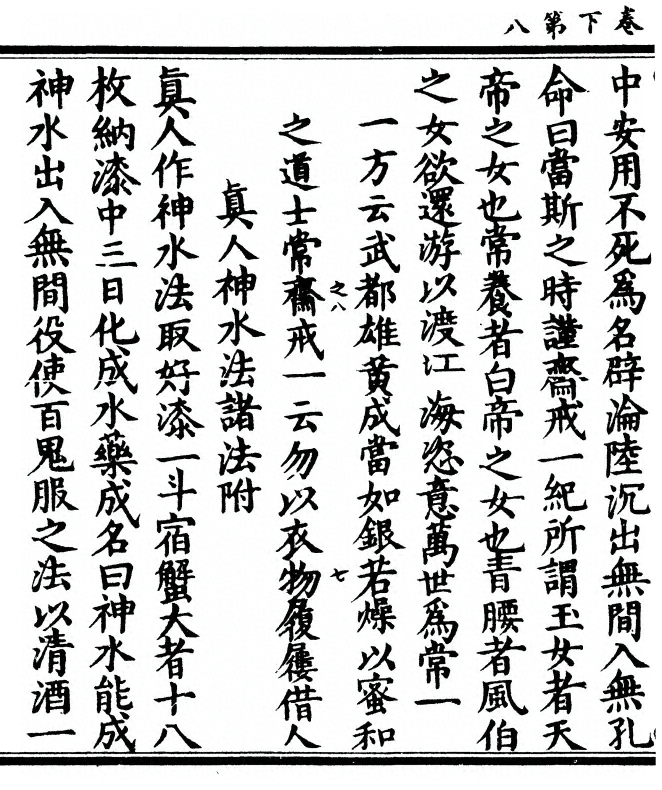 卷下第八
中安用不死為名辟淪陸沉出無間入無孔
命曰當斯之時謹齋戒一紀所謂玉女者天
帝之女也常養者白帝之女也青腰者風伯
之女欲還游以渡江海恣意萬世為常一
一方云武都雄黄成當如銀若燥以蜜和
之八
七
之道士常齋戒一云勿以衣物履屨借人
真人神水法諸法附
真人作神水法取好漆一斗宿蟹大者十八
枚納漆中三日化成水藥成名曰神水能成
神水出入無間役使百鬼服之法以清酒一